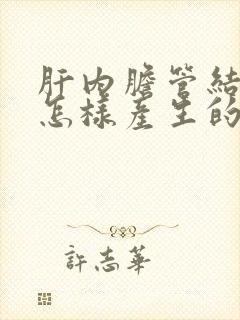 肝内膽管結
怎樣產生的
許志華